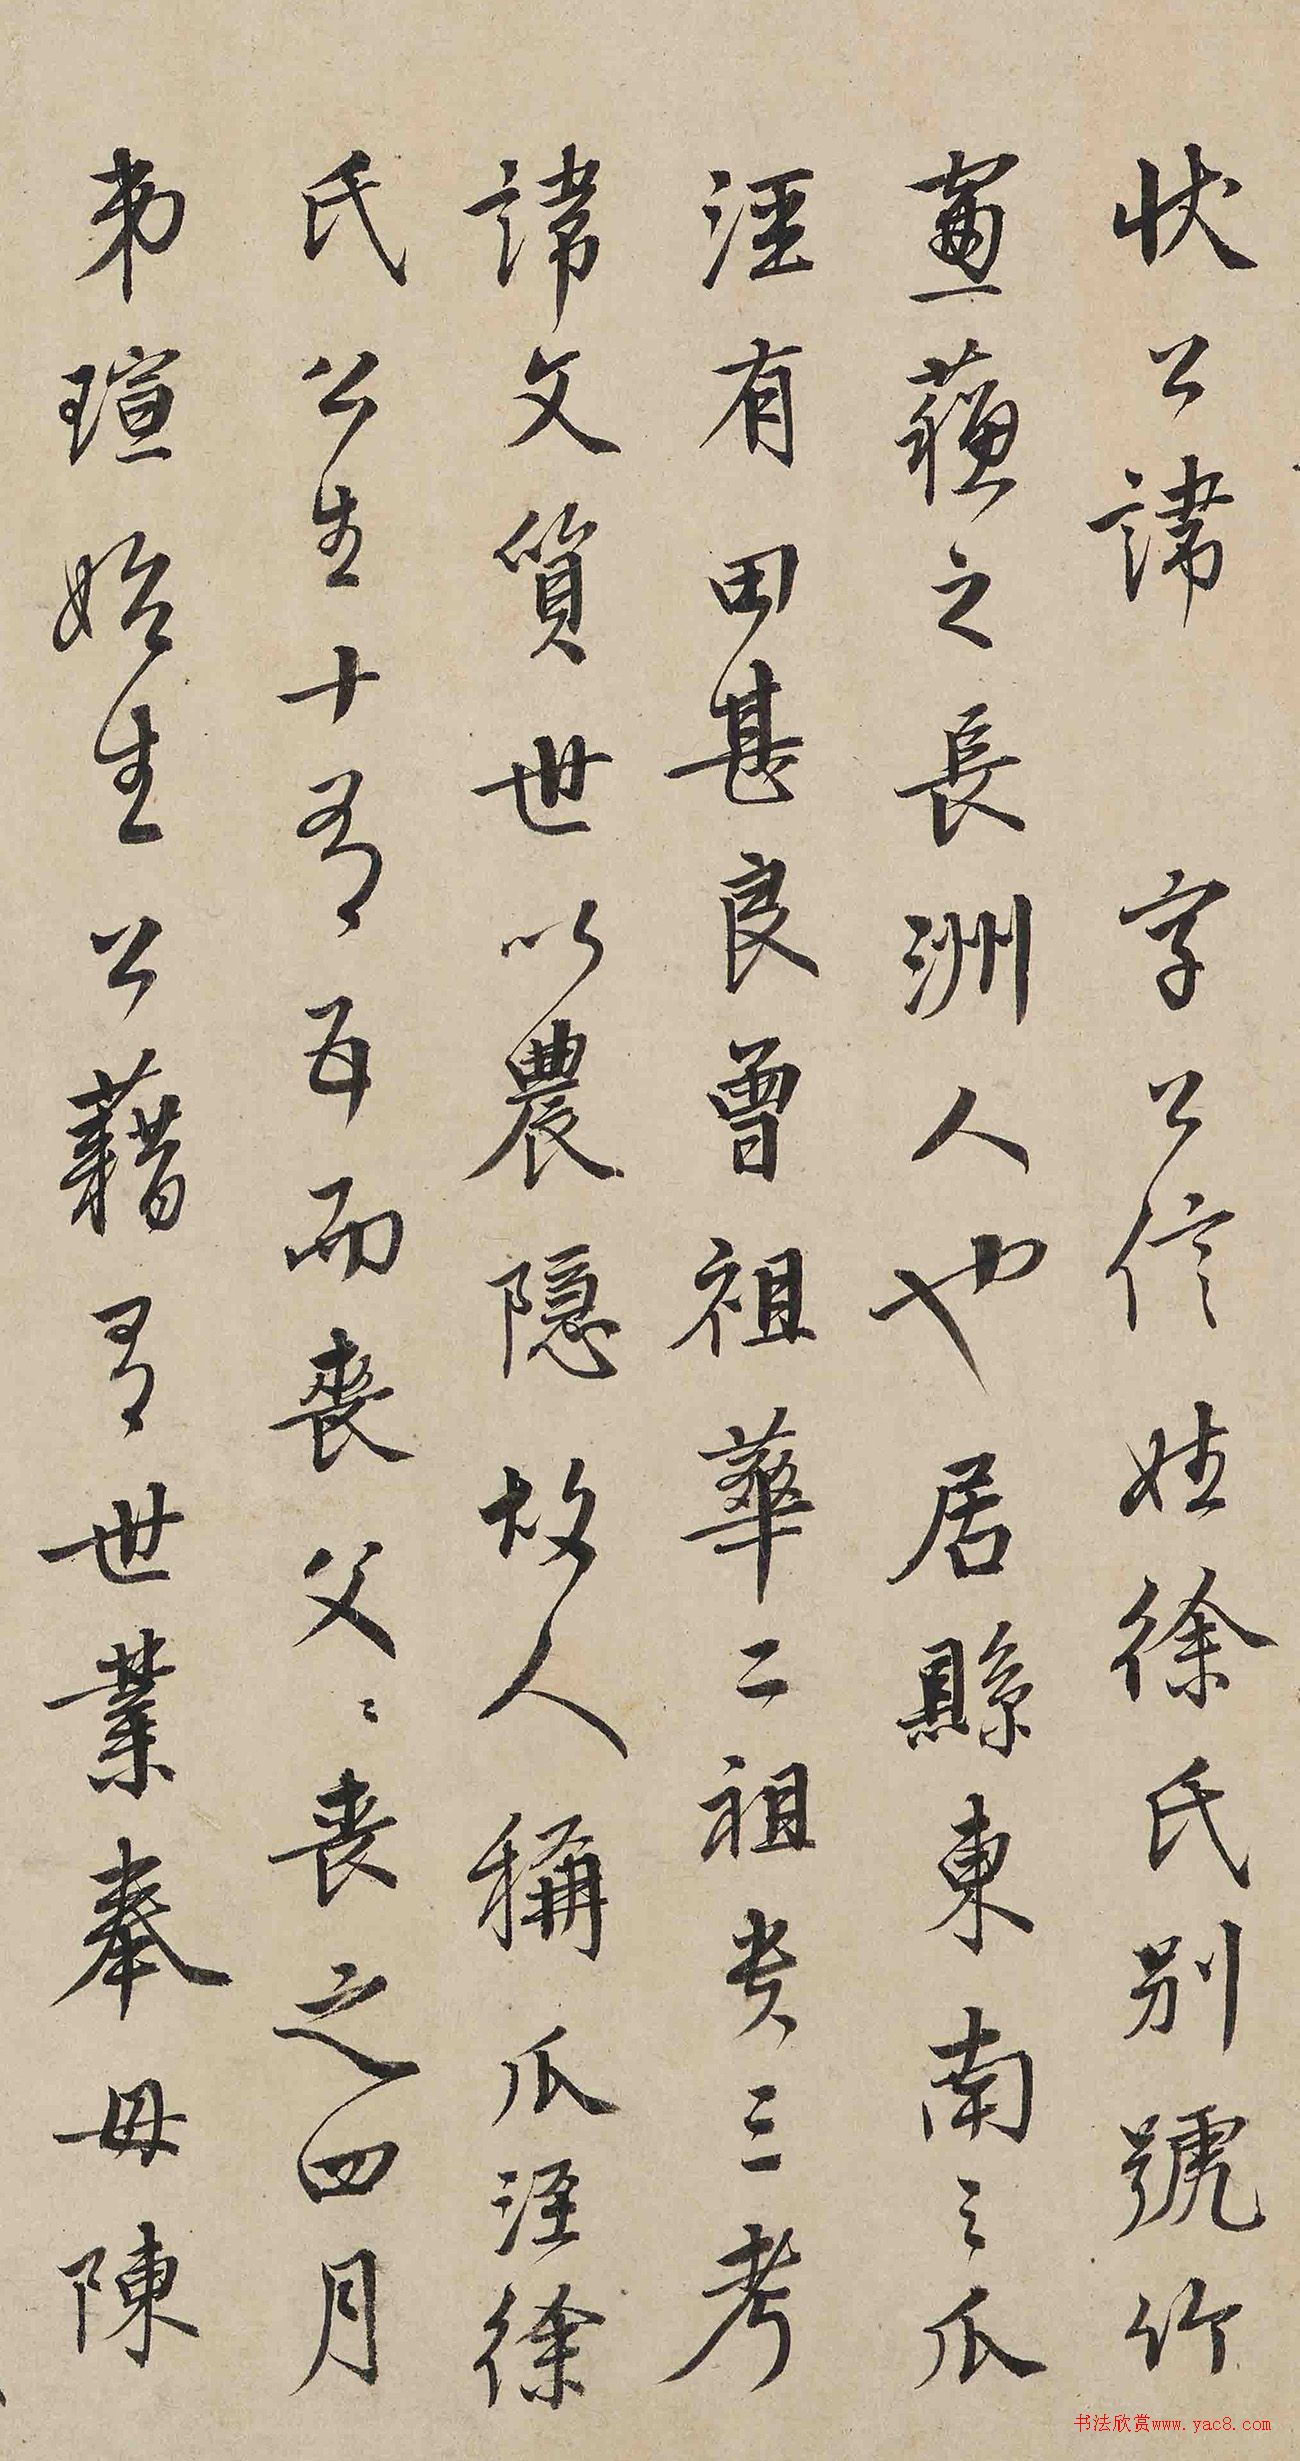 狀公諱 字公信姓徐氏別號竹
窗蘇之長洲人也居縣東南之瓜
涇有田甚良曾祖華二祖考三考
諱文質世以農隱故人稱瓜涇徐
氏公生十有五而喪父〻喪之四月
弟瑄始生公藉有世業奉母陳
书法欣赏www.yac8.com